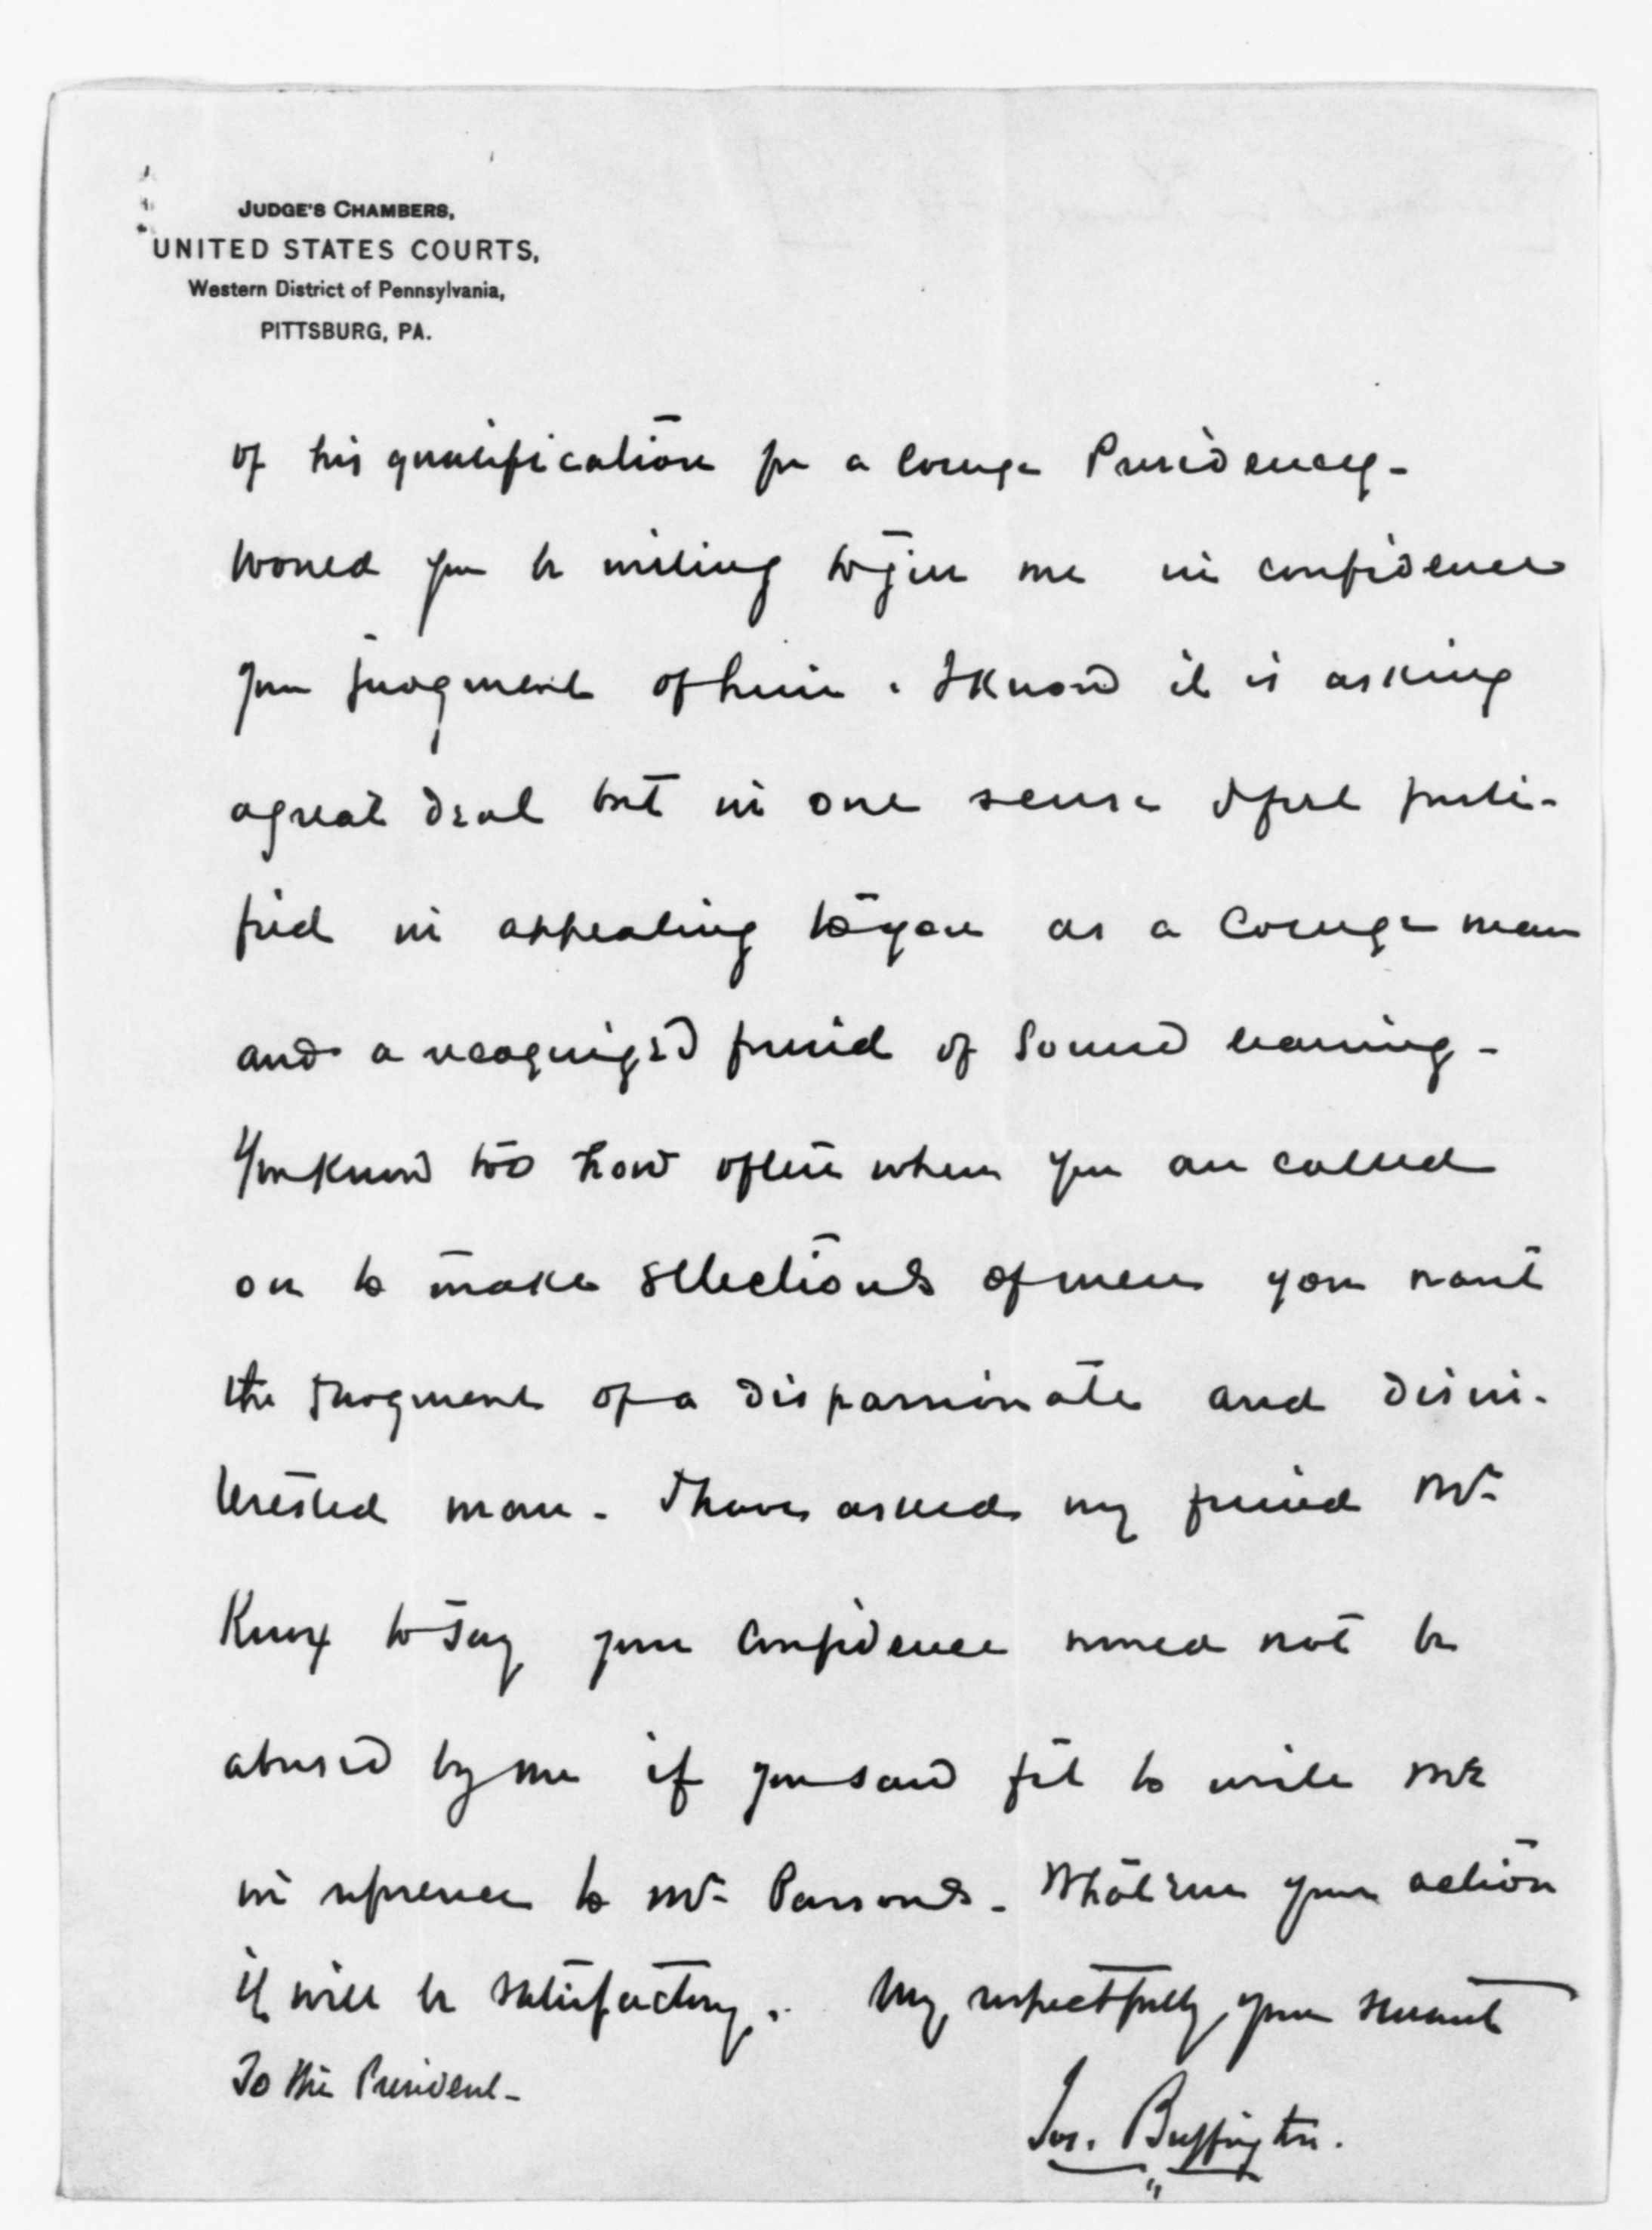 JUDGE'S CHAMBERS,
UNITED STATES COURTS,
Western District of Pennsylvania,
PITTSBURG, PA.
of his qualification for a College Presidency-
Would you be willing to give me in confidence
your judgment of him. I know it is asking
a great deal but in one sense I feel justi-
fied in appealing to you as a College man
and a recognized friend of sound learning-
You know too how often when you are called
on to make selections of men you want
the judgment of a dispassionate and disin-
terested man- I have asked my friend Mr
Knox to say your confidence would not be
abused by me if you saw fit to write me
in reference to Mr Parsons- Whatever your action
it will be satisfactory. Very respectfully, your servant
To the President-
Jos. Buffington.